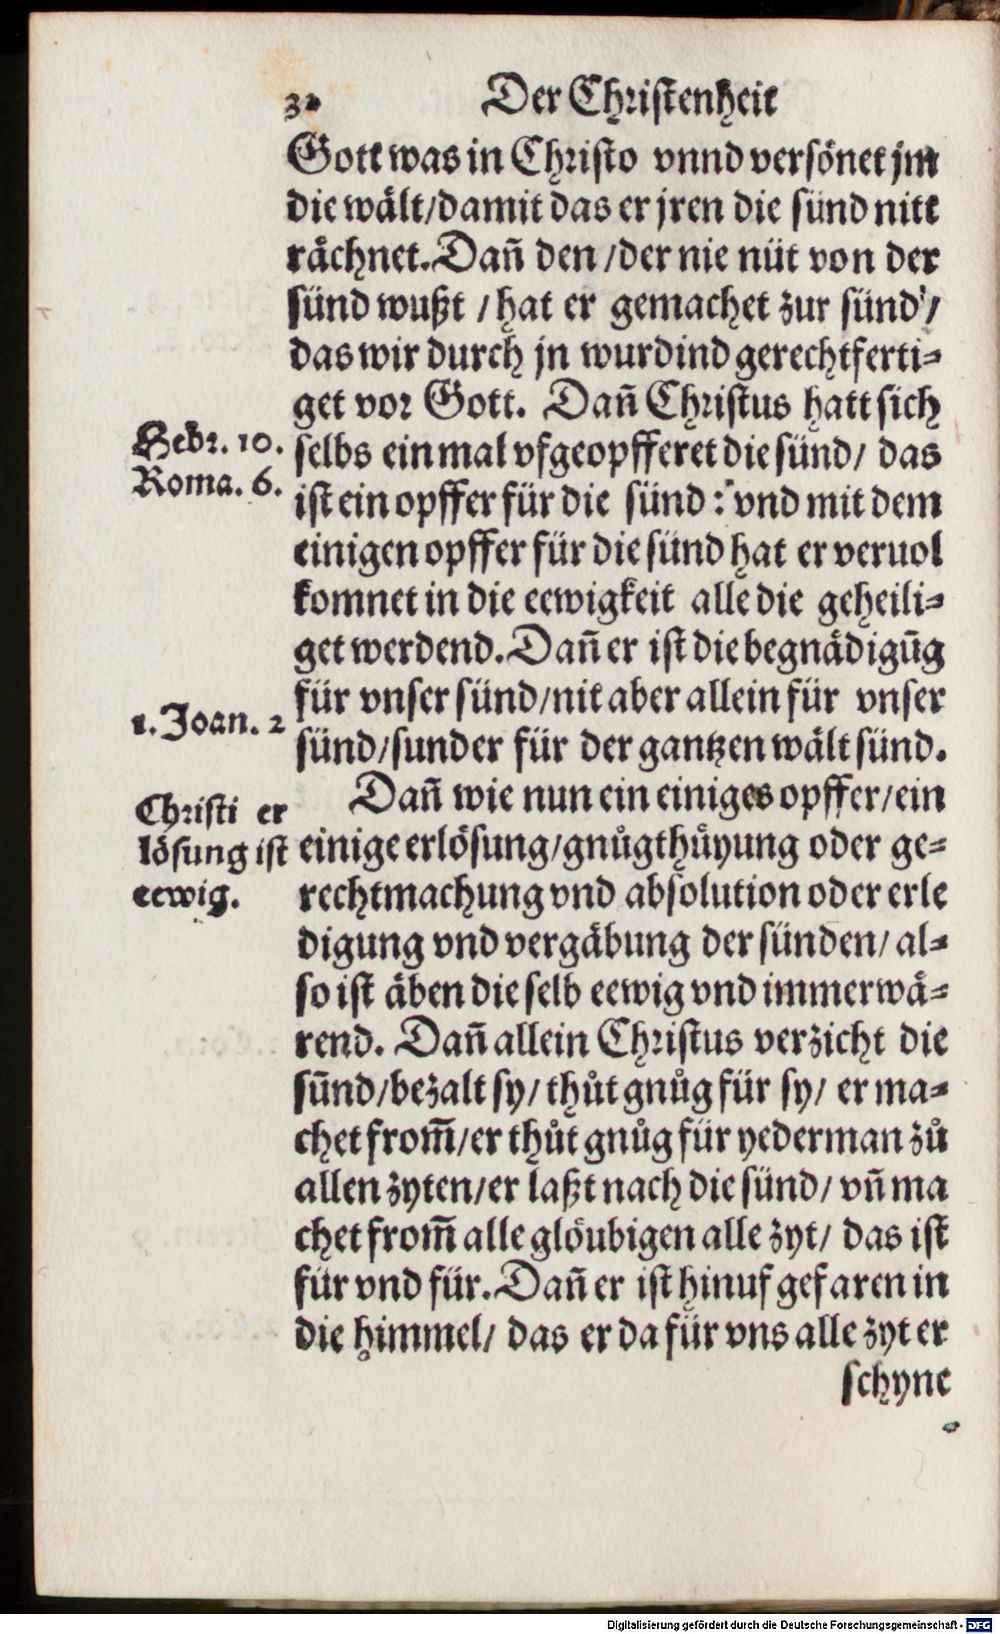 32 Der Christenheit
Gott was in Christo vnnd versönet jm
die wält/damit das er jren die sünd nitt
rächnet. Dañ den /der nie nüt von der
sünd wußt / hat er gemachet zur sünd/
das wir durch jn wurdind gerechtferti-
get vor Gott. Dañ Christus hatt sich
Hebr. 10.
selbs ein mal vfgeopfferet die sünd/ das
Roma. 6.
ist ein opffer für die sünd: vnd mit dem
einigen opffer für die sünd hat er veruol
komnet in die eewigkeit alle die geheili-
get werdend. Dañ er ist die begnädigūg
für vnser sünd/nit aber allein für vnser
1. Joan. 2
sünd/sunder für der gantzen wält sünd.
Dañ wie nun ein einiges opffer/ein
Christi er
lösung ist
eewig.
einige erlösung/gnůgthůyung oder ge-
rechtmachung vnd absolution oder erle
digung vnd vergäbung der sünden/ al-
so ist äben die selb eewig vnd immerwä-
rend. Dañ allein Christus verzicht die
sünd/bezalt sy/ thůt gnůg für sy/ er ma-
chet from̄/er thůt gnůg für yederman zů
allen zyten/er laßt nach die sünd/ vñ ma
chet from̄ alle glöubigen alle zyt/ das ist
für vnd für. Dañ er ist hinuf gefaren in
die himmel/ das er da für vns alle zyt er
schyne
Digitalisierung gefördert durch die Deutsche Forschungsgemeinschaft - DFG